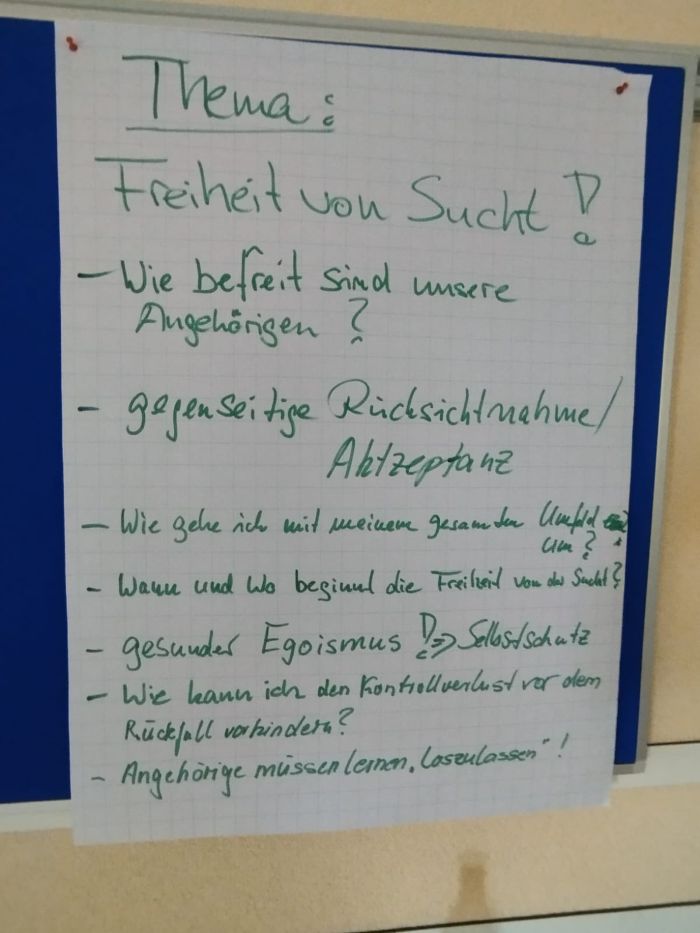 Thema:
Freiheit von Sucht!
- Wie befreit sind unsere
Angehörigen?
- gegenseitige Rücksichtnahme/
Aktzeptanz
- Wie gehe ich mit meinem gesamten Umfeld
um?
- Wann und Wo beginnt die Freiheit von der Sucht?
- gesunder Egoismus! => Selbstschutz
- Wie kann ich den Kontrollverlust vor dem
Rückfall verhindern?
- Angehörige müssen lernen „loszulassen"!